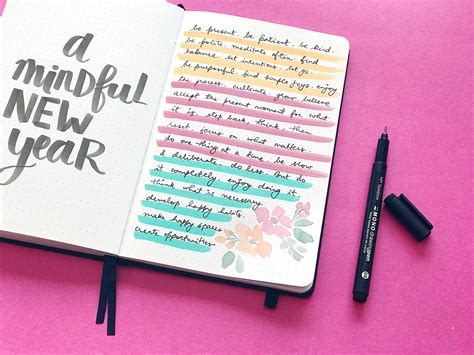 a
mindful
NEW
YEAR
be present. be patient. be kind.
be polite. meditate often. find
balance. set intentions. let go.
be purposeful. find simple joys. enjoy
the process. cultivate. grow. believe
accept the present moment for what
it is. step back, think, then
reset. focus on what matters.
do one thing at a time. be slow
& deliberate. do less. but do
it completely. enjoy doing it.
think what is necessary.
develop happy habits.
make happy spaces.
create opportunities.
MONO drawing pen